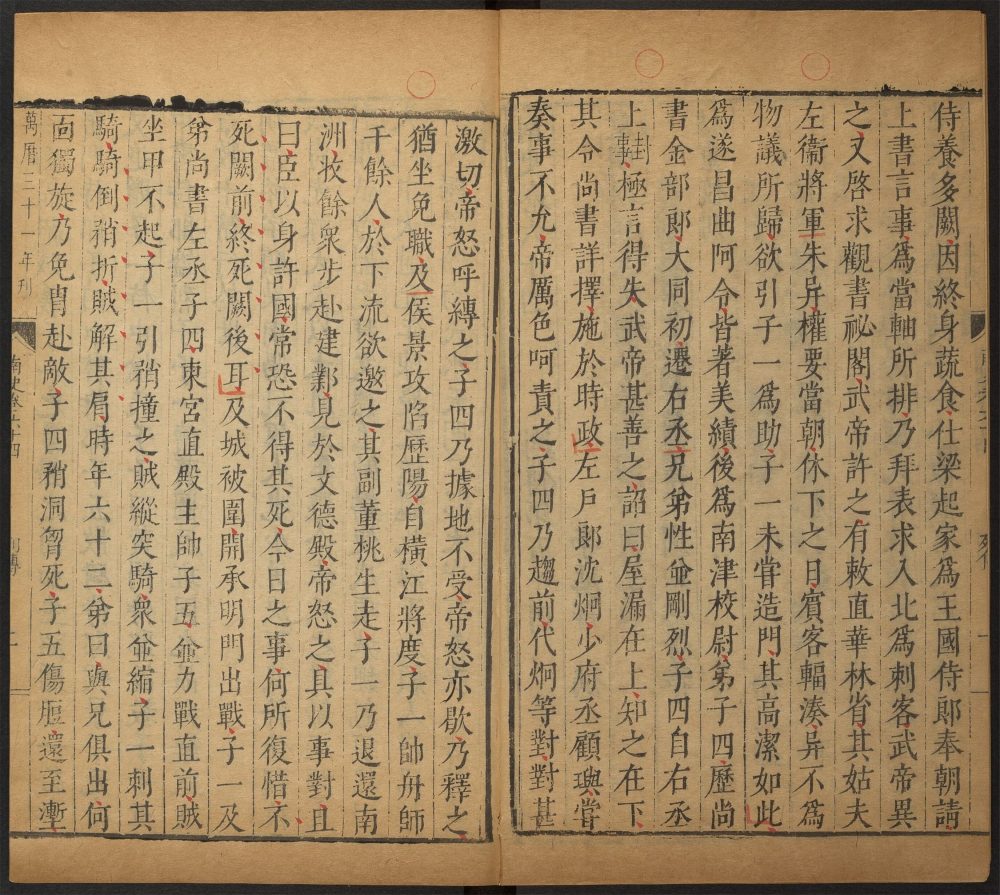 侍養多闕因終身蔬食仕梁起家爲王國侍郎奉朝請
上書言事爲當軸所排乃拜表求入北爲刺客武帝異
之又啓求觀書祕閣武帝許之有敕直華林省其姑夫
左衞將軍朱异權要當朝休下之日賓客輻湊异不爲
物議所歸欲引子一爲助子一未嘗造門其高潔如此
爲遂昌曲阿令皆著美績後爲南津校尉弟子四歷尚
書金部郎大同初遷右丞兄弟性並剛烈子四自右丞
上封事極言得失武帝甚善之詔曰屋漏在上知之在下
其令尚書詳擇施於時政左戶郎沈炯少府丞顧璵嘗
奏事不允帝厲色呵責之子四乃趨前代炯等對對甚
激切帝怒呼縛之子四乃據地不受帝怒亦歇乃釋之
猶坐免職及侯景攻陷歷陽自橫江將度子一帥舟師
千餘人於下流欲邀之其副董桃生走子一乃退還南
洲收餘衆步赴建鄴見於文德殿帝怒之具以事對且
曰臣以身許國常恐不得其死今日之事何所復惜不
死闕前終死闕後耳及城被圍開承明門出戰子一及
弟尚書左丞子四東宮直殿主帥子五並力戰直前賊
坐甲不起子一引矟撞之賊縱突騎衆並縮子一刺其
騎騎倒矟折賊解其肩時年六十二弟曰與兄俱出何
面獨旋乃免冑赴敵子四矟洞胷死子五傷脰還至塹
萬曆三十一年刊
南史卷六十四
列傳